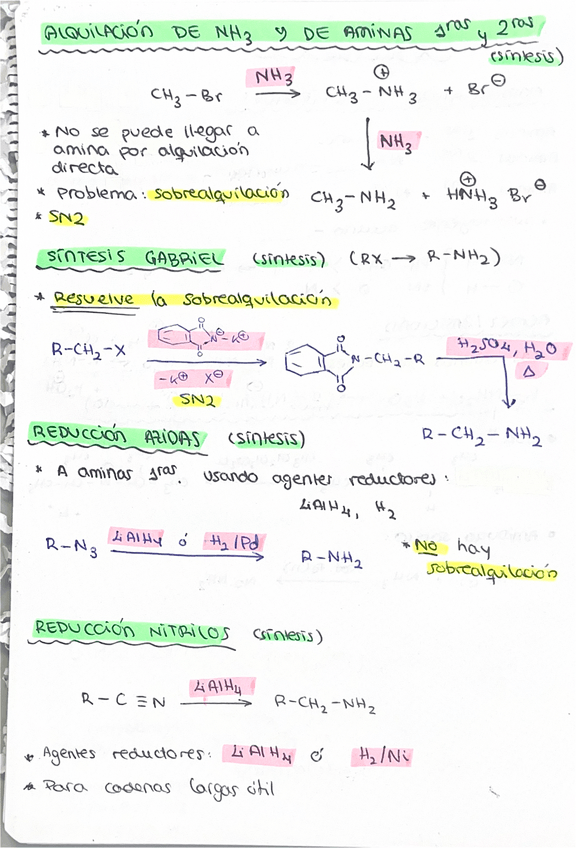 ALQUILACIÓN DE NH₃ Y DE AMINAS 1ras y 2ras
(síntesis)
CH₃–Br NH₃ → CH₃–NH₃⊕ + Br⊖
* No se puede llegar a
amina por alquilación
directa
NH₃
* Problema: sobrealquilación CH₃–NH₂ + HNH₃⊕ Br⊖
* SN2
SÍNTESIS GABRIEL (síntesis) (RX → R–NH₂)
* Resuelve la sobrealquilación
R–CH₂–X O N⊖–K⊕ O → O N–CH₂–R O H₂SO₄, H₂O
–K⊕ X⊖ Δ
SN2
R–CH₂–NH₂
REDUCCIÓN AZIDAS (síntesis)
* A aminas 1ras. usando agentes reductores:
LiAlH₄, H₂
R–N₃ LiAlH₄ ó H₂/Pd → R–NH₂
* No hay
sobrealquilación
REDUCCIÓN NITRILOS (síntesis)
R–C≡N LiAlH₄ → R–CH₂–NH₂
* Agentes reductores: LiAlH₄ ó H₂/Ni
* Para cadenas largas útil